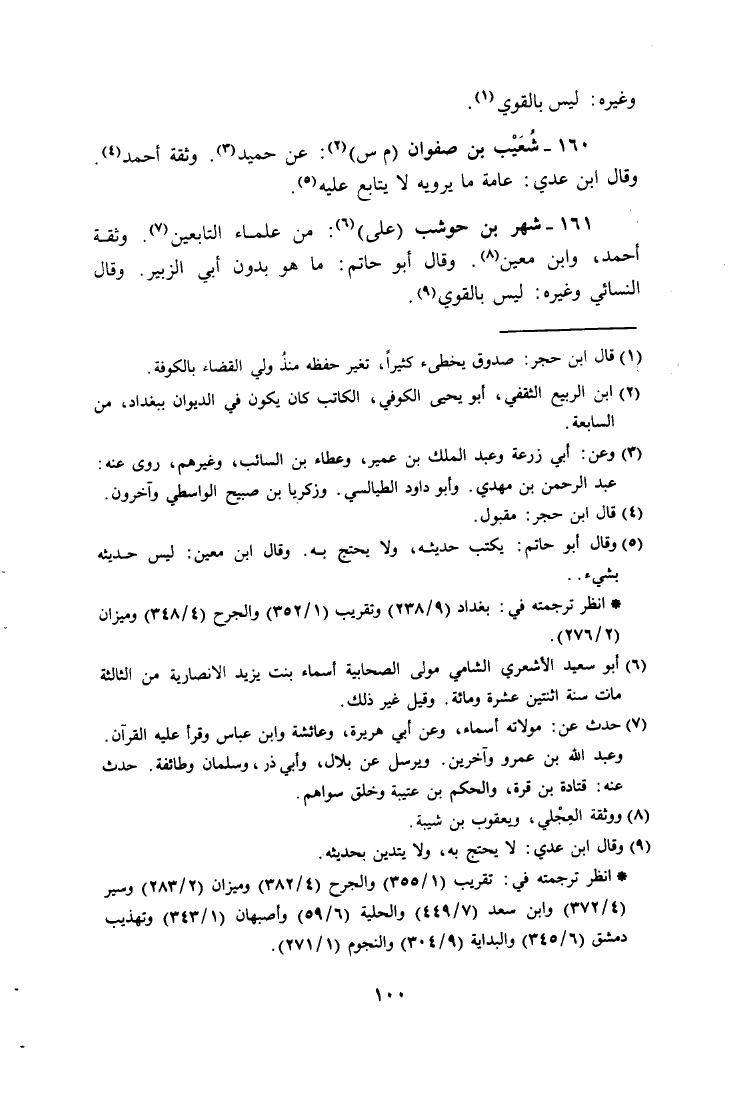 وغيره: ليس بالقوي(١).
١٦٠ - شُعَيْب بن صفوان (م س)(٢): عن حميد(٣). وثقة أحمد(٤).
وقال ابن عدي: عامة ما يرويه لا يتابع عليه(٥).
١٦١ - شهر بن حوشب (على)(٦): من علماء التابعين(٧). وثقـة
أحمد، وابن معين(٨). وقال أبو حاتم: ما هو بدون أبي الزبير. وقال
النسائي وغيره: ليس بالقوي(٩).
(١) قال ابن حجر: صدوق يخطىء كثيراً، تغير حفظه منذُ ولي القضاء بالكوفة.
(٢) ابن الربيع الثقفي، أبو يحيى الكوفي، الكاتب كان يكون في الديوان ببغداد، من
السابعة.
(٣) وعن: أبي زرعة وعبد الملك بن عمير، وعطاء بن السائب، وغيرهم، روى عنه:
عبد الرحمن بن مهدي. وأبو داود الطيالسي. وزكريا بن صبيح الواسطي وآخرون.
(٤) قال ابن حجر: مقبول.
(٥) وقال أبو حاتم: يكتب حديثـه، ولا يحتج بـه. وقال ابن معين: ليس حـديثه
بشيء. .
* انظر ترجمته في: بغداد (٢٣٨/٩) وتقريب (٣٥٢/١) والجرح (٣٤٨/٤) وميزان
(٢٧٦/٢).
(٦) أبو سعيد الأشعري الشامي مولى الصحابية أسماء بنت يزيد الانصارية من الثالثة
مات سنة اثنتين عشرة ومائة. وقيل غير ذلك.
(٧) حدث عن: مولاته أسماء، وعن أبي هريرة، وعائشة وابن عباس وقرأ عليه القرآن.
وعبد الله بن عمرو وآخرين. ويرسل عن بلال، وأبي ذر، وسلمان وطائفة. حدث
عنه: قتادة بن قرة، والحكم بن عتيبة وخلق سواهم.
(٨) ووثقة العِجْلي، ويعقوب بن شيبة.
(٩) وقال ابن عدي: لا يحتج به، ولا يتدين بحديثه.
* انظر ترجمته في: تقريب (٣٥٥/١) والجرح (٣٨٢/٤) وميزان (٢٨٣/٢) وسير
(٣٧٢/٤) وابن سعد (٤٤٩/٧) والحلية (٥٩/٦) وأصبهان (٣٤٣/١) وتهذيب
دمشق (٣٤٥/٦) والبداية (٣٠٤/٩) والنجوم (٢٧١/١).
١٠٠